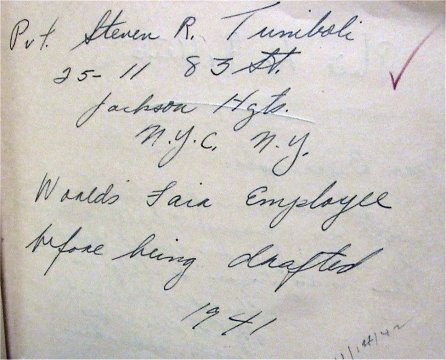 Pvt. Steven R. Tumboli
25-11 83 St.
Jackson Hgts.
N.Y.C. N.Y.
World's Fair Employee
before being drafted
1941
11/14/42